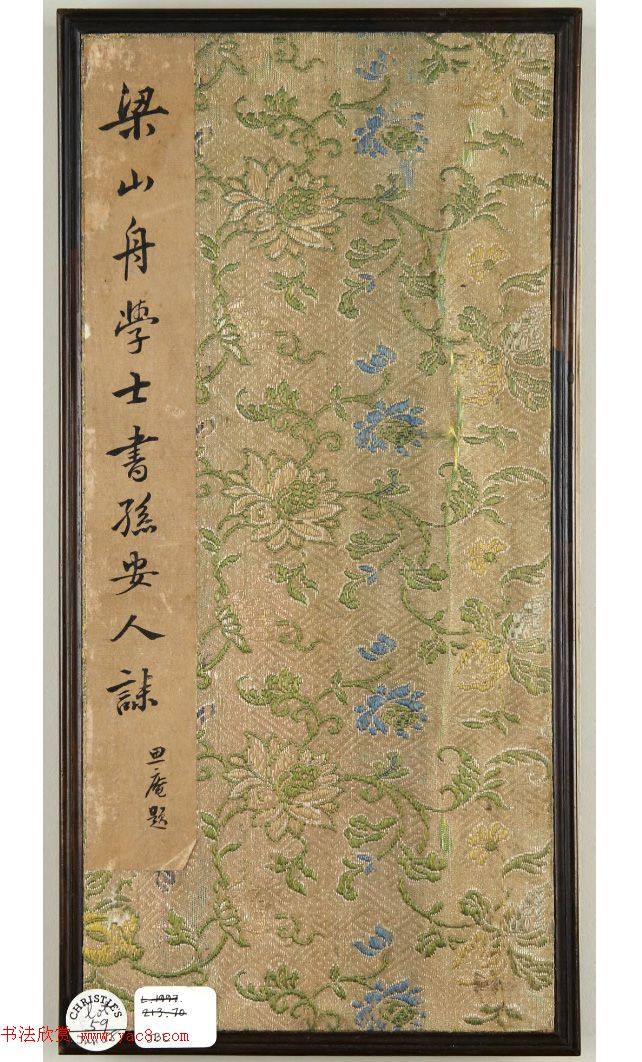 梁山舟學士書孫安人誄
思庵題
CHRISTIE'S
Lot
59
L.1997.
213.70
书法欣赏 www.yac8.com